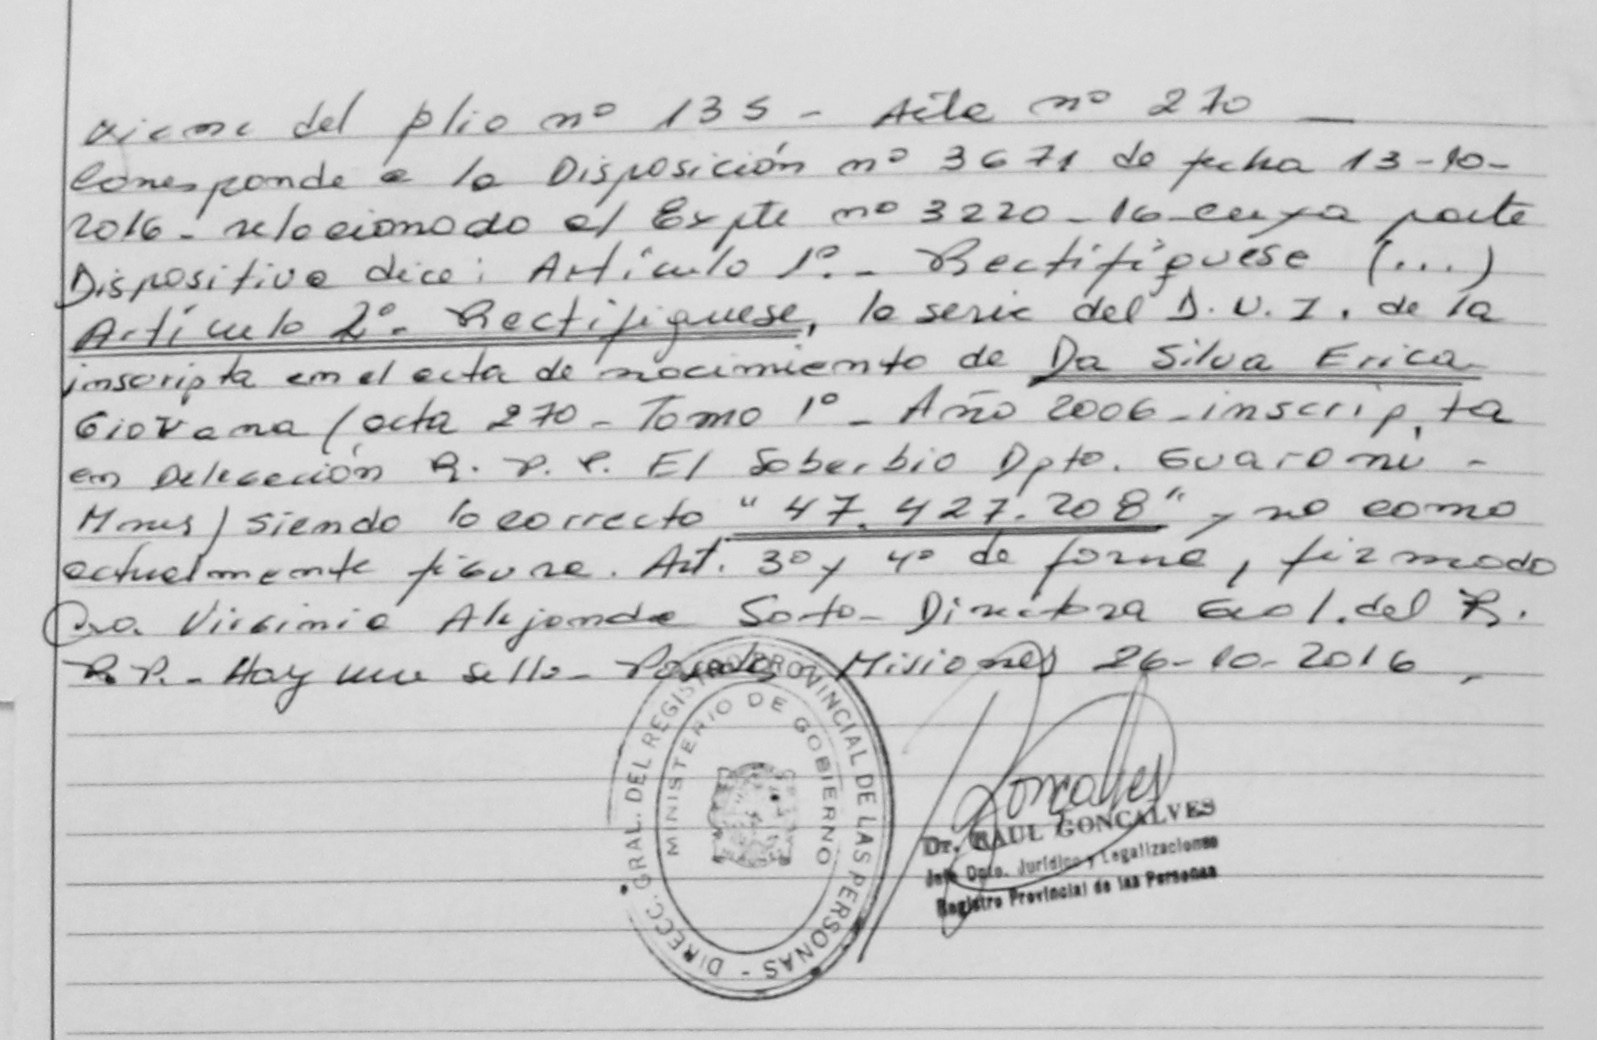 viene del folio nº 135 - Acta nº 270 —
Corresponde a la Disposición nº 3671 de fecha 13-10-
2016 - relacionado al Expte nº 3220-16 cuya parte
Dispositiva dice: Artículo 1º.- Rectifíquese (...)
Artículo 2º. Rectifíquese, la serie del D.U.I. de la
inscripta en el acta de nacimiento de Da Silva Erica
Giovana (acta 270 - Tomo 1º - Año 2006 - inscripta
en Delegación R.P.P. El Soberbio Dpto. Guaraní -
Mnes) siendo lo correcto "47.427.208" y no como
actualmente figura. Art. 3º y 4º de forma, firmado
Dra. Virginia Alejandra Soto - Directora Gral. del R.
P.P. - Hay un sello - Posadas Misiones 26-10-2016,
DIRECC. GRAL. DEL REGISTRO PROVINCIAL DE LAS PERSONAS -
MINISTERIO DE GOBIERNO
Goncalves
Dr. RAUL GONCALVES
Jefe Dpto. Jurídico y Legalizaciones
Registro Provincial de las Personas